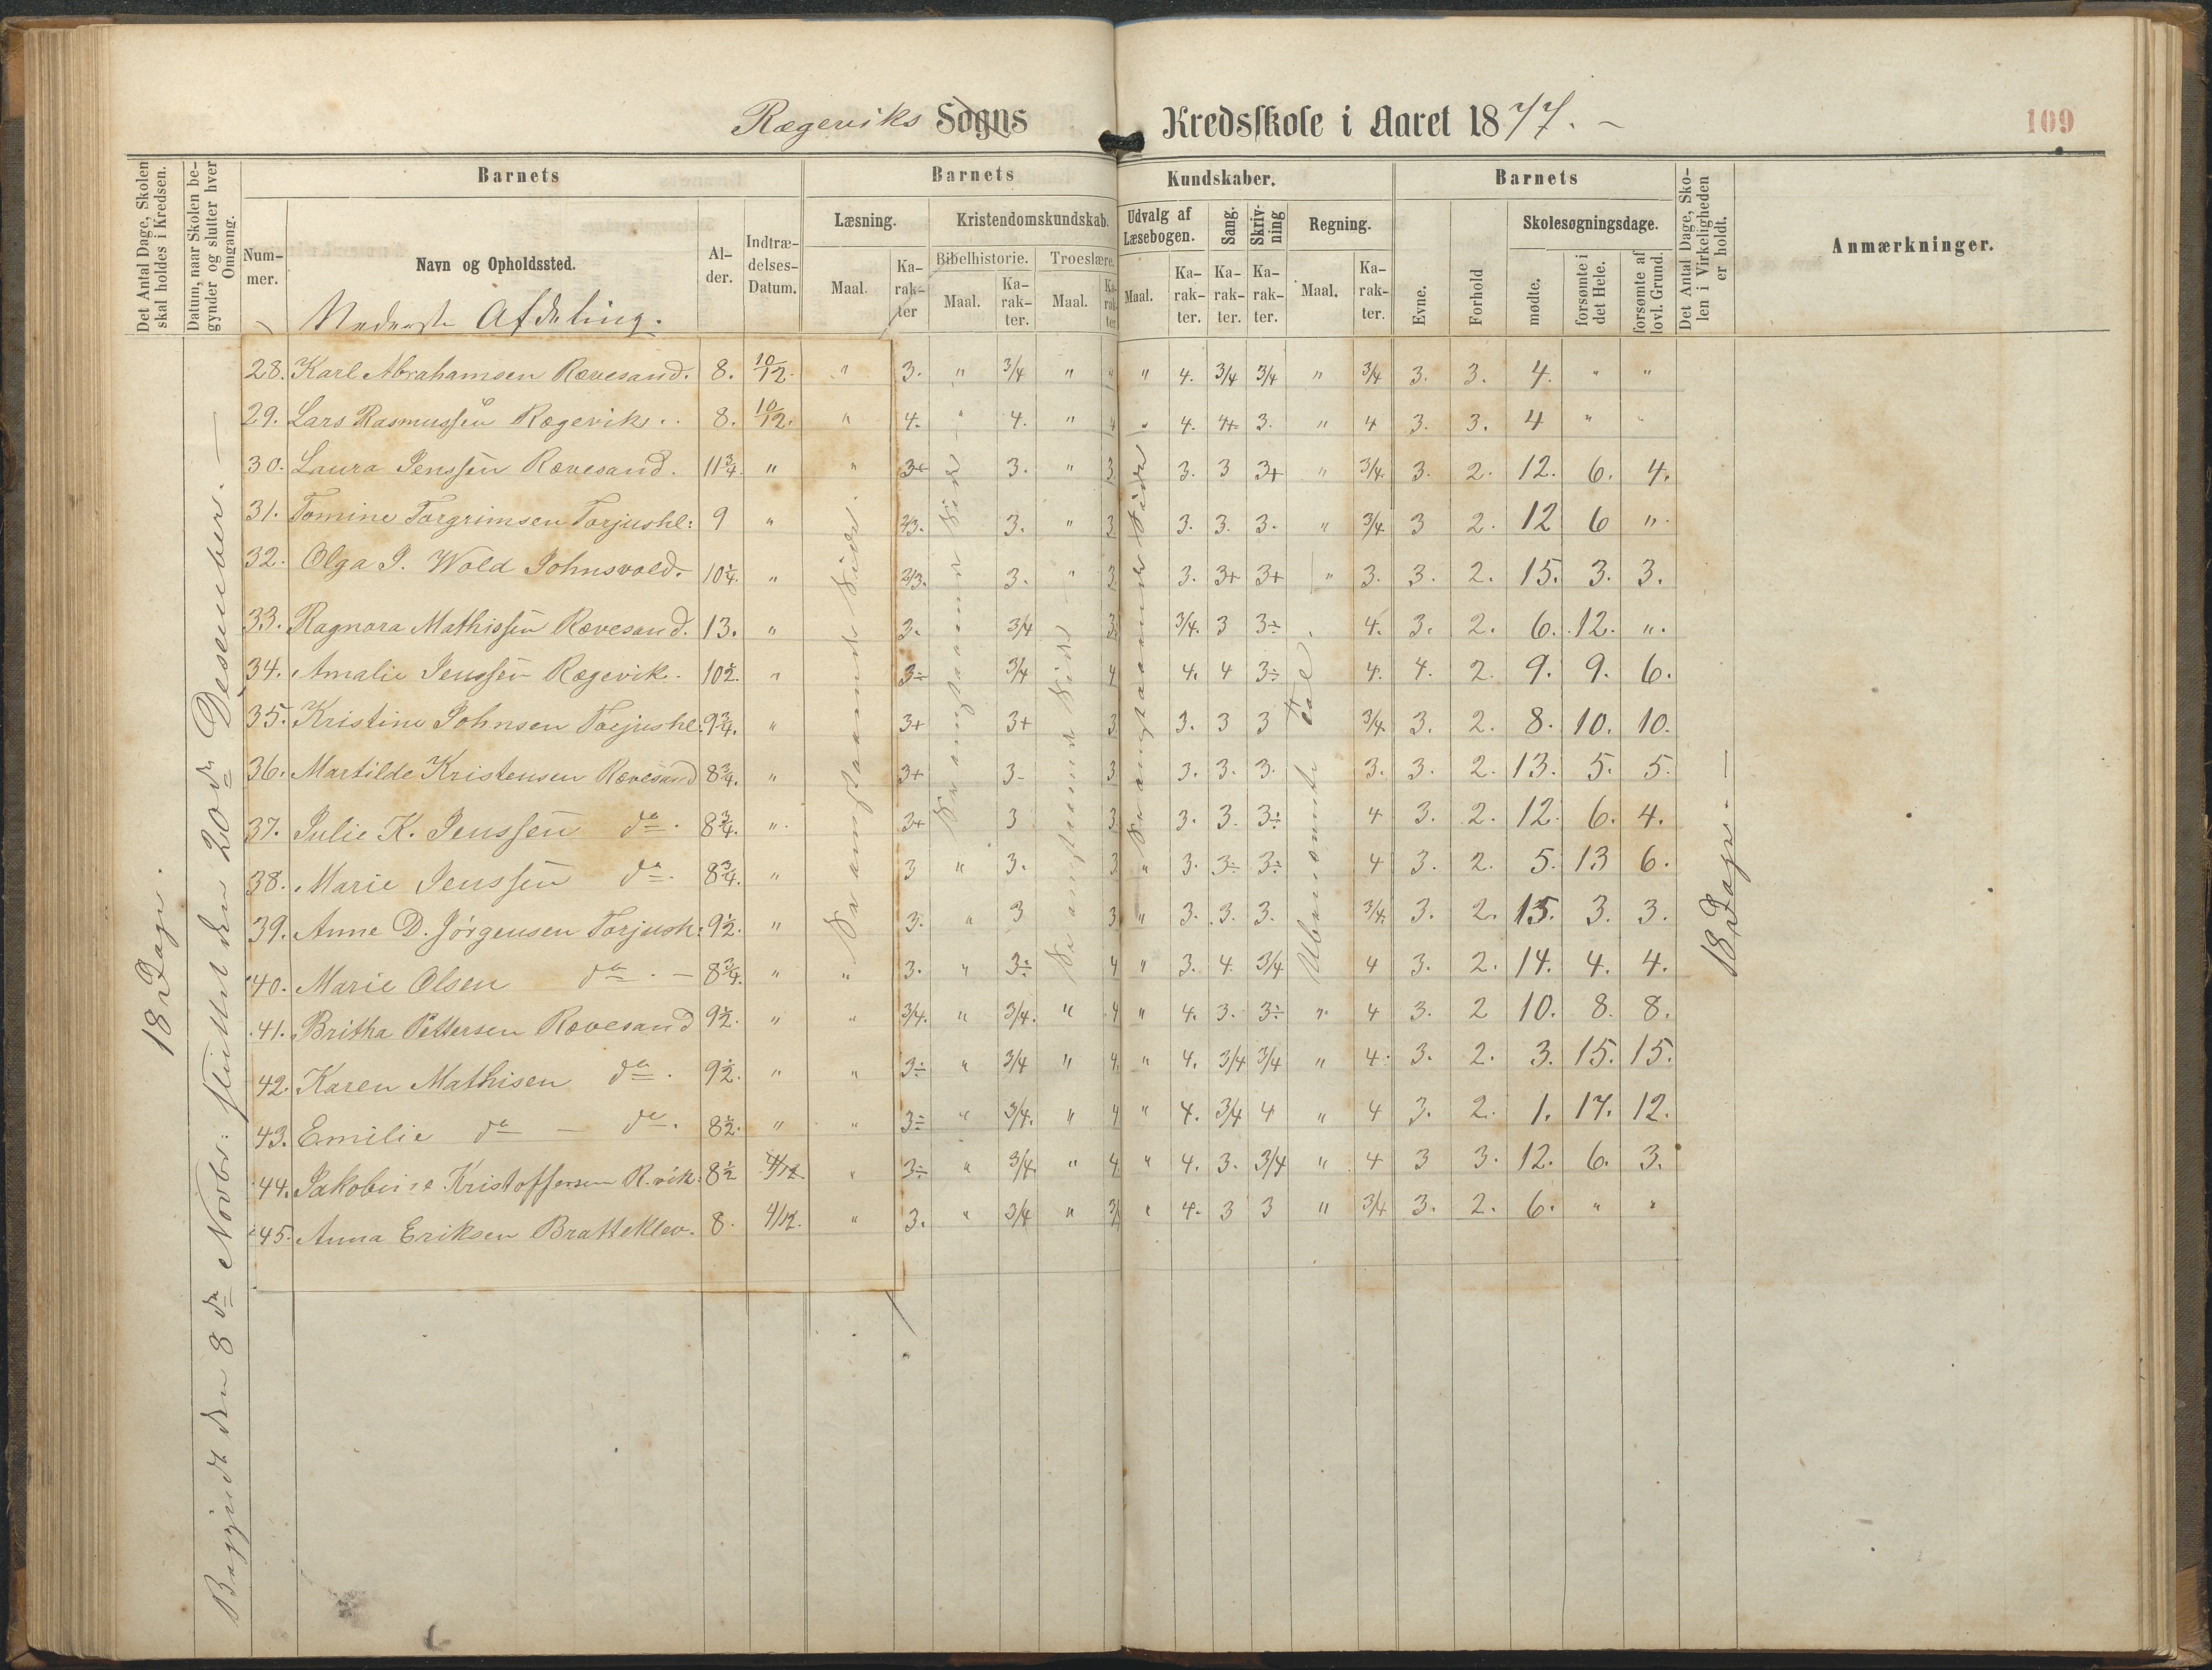 Rægeviks Sogns Kredsskole i Aaret 1877. -
109
Det Antal Dage, Skolen skal holdes i Kredsen.
Datum, naar Skolen begynder og slutter hver Omgang.
Barnets
Barnets
Kundskaber.
Barnets
Det Antal Dage, Skolen i Virkeligheden er holdt.
Anmærkninger.
Nummer.
Navn og Opholdssted.
Alder.
Indtrædelses-Datum.
Læsning.
Kristendomskundskab.
Udvalg af Læsebogen.
Sang.
Skrivning
Regning.
Skolesøgningsdage.
Bibelhistorie.
Troeslære.
Maal.
Karakter
Maal.
Karakter.
Maal.
Karakter.
Maal.
Karakter.
Karakter.
Karakter.
Maal.
Karakter.
Evne.
Forhold
mødte.
forsømte i det Hele.
forsømte af lovl. Grund.
Nederste Afdeling.
28. Karl Abrahamsen Rævesand. 8. 10/12. " 3. " 3/4 " " " 4. 3/4 3/4 " 3/4 3. 3. 4. " "
29. Lars Rasmussen Rægevik. . 8. 10/12. " 4. " 4. " 4 " 4. 4+ 3. " 4 3. 3. 4 " "
30. Laura Jenssen Rævesand. 11 3/4. " " 3+ 3. " 3 3. 3 3+ " 3/4 3. 2. 12. 6. 4.
31. Tomine Torgrimsen Torjushl: 9 " 2/3. 3. " 3 3. 3. 3. " 3/4 3 2. 12 6 "
32. Olga J. Wold Johnsvold. 10 1/4. " 2/3. 3. " 3 3. 3+ 3+ " 3. 3. 2. 15. 3. 3.
33. Ragnora Mathissen Rævesand. 13. " 3. 3/4 3 3/4. 3 3÷ 4. 3. 2. 6. 12. "
34. Amalie Jenssen Rægevik. 10 1/2. " 3÷ 3/4 4 4. 4 3÷ 4. 4. 2. 9. 9. 6.
35. Kristine Johnsen Torjushl. 9 3/4. " 3+ 3+ 3 3. 3 3 3/4 3. 2. 8. 10. 10.
36. Martilde Kristensen Rævesand 8 3/4. " 3+ 3- 3 3. 3. 3. 3. 3. 2. 13. 5. 5.
37. Julie K. Jenssen do. 8 3/4. " 3+ 3 3 3. 3. 3÷ 4 3. 2. 12. 6. 4.
38. Marie Jenssen do. 8 3/4. " 3 " 3. 3 " 3. 3÷ 3÷ 4 3. 2. 5. 13 6.
39. Anne D. Jörgensen Torjush: 9 1/2. " 3. " 3 3 " 3. 3. 3. 3/4. 3. 2. 15. 3. 3.
40. Marie Olsen do. - 8 3/4. " " 3. " 3÷ 4 " 3. 4. 3/4 4 3. 2. 14. 4. 4.
41. Britha Pettersen Rævesand 9 1/2. " " 3/4. " 3/4. " 4 " 4. 3. 3÷ " 4 3. 2 10. 8. 8.
42. Karen Mathisen do. 9 1/2. " " 3÷ " 3/4 " 4. " 4. 3/4 3/4 " 4. 3. 2. 3. 15. 15.
43. Emilie do - do. 8 1/2. " " 3÷ " 3/4. " 4 " 4. 3/4 4 " 4 3. 2. 1. 17. 12.
44. Jakobine Kristoffersen R.vik. 8 1/2 4/12 " 3÷ " 3/4. " 4 " 4. 3. 3/4 " 4 3 3. 12. 6. 3.
45. Anna Eriksen Bratteklev. 8. 4/12. " 3. " 3/4 " 3/ " 4. 3 3 " 3/4 3. 2. 6. " "
18 Dage.
Begyndt den 8de Novbr: sluttet den 20de Desember. -
Se amgstaaende Side
Se amgstaaende Side
Se amgstaaende Side
Se amgstaaende Side
Ubenævnte Tal
18 Dage. -